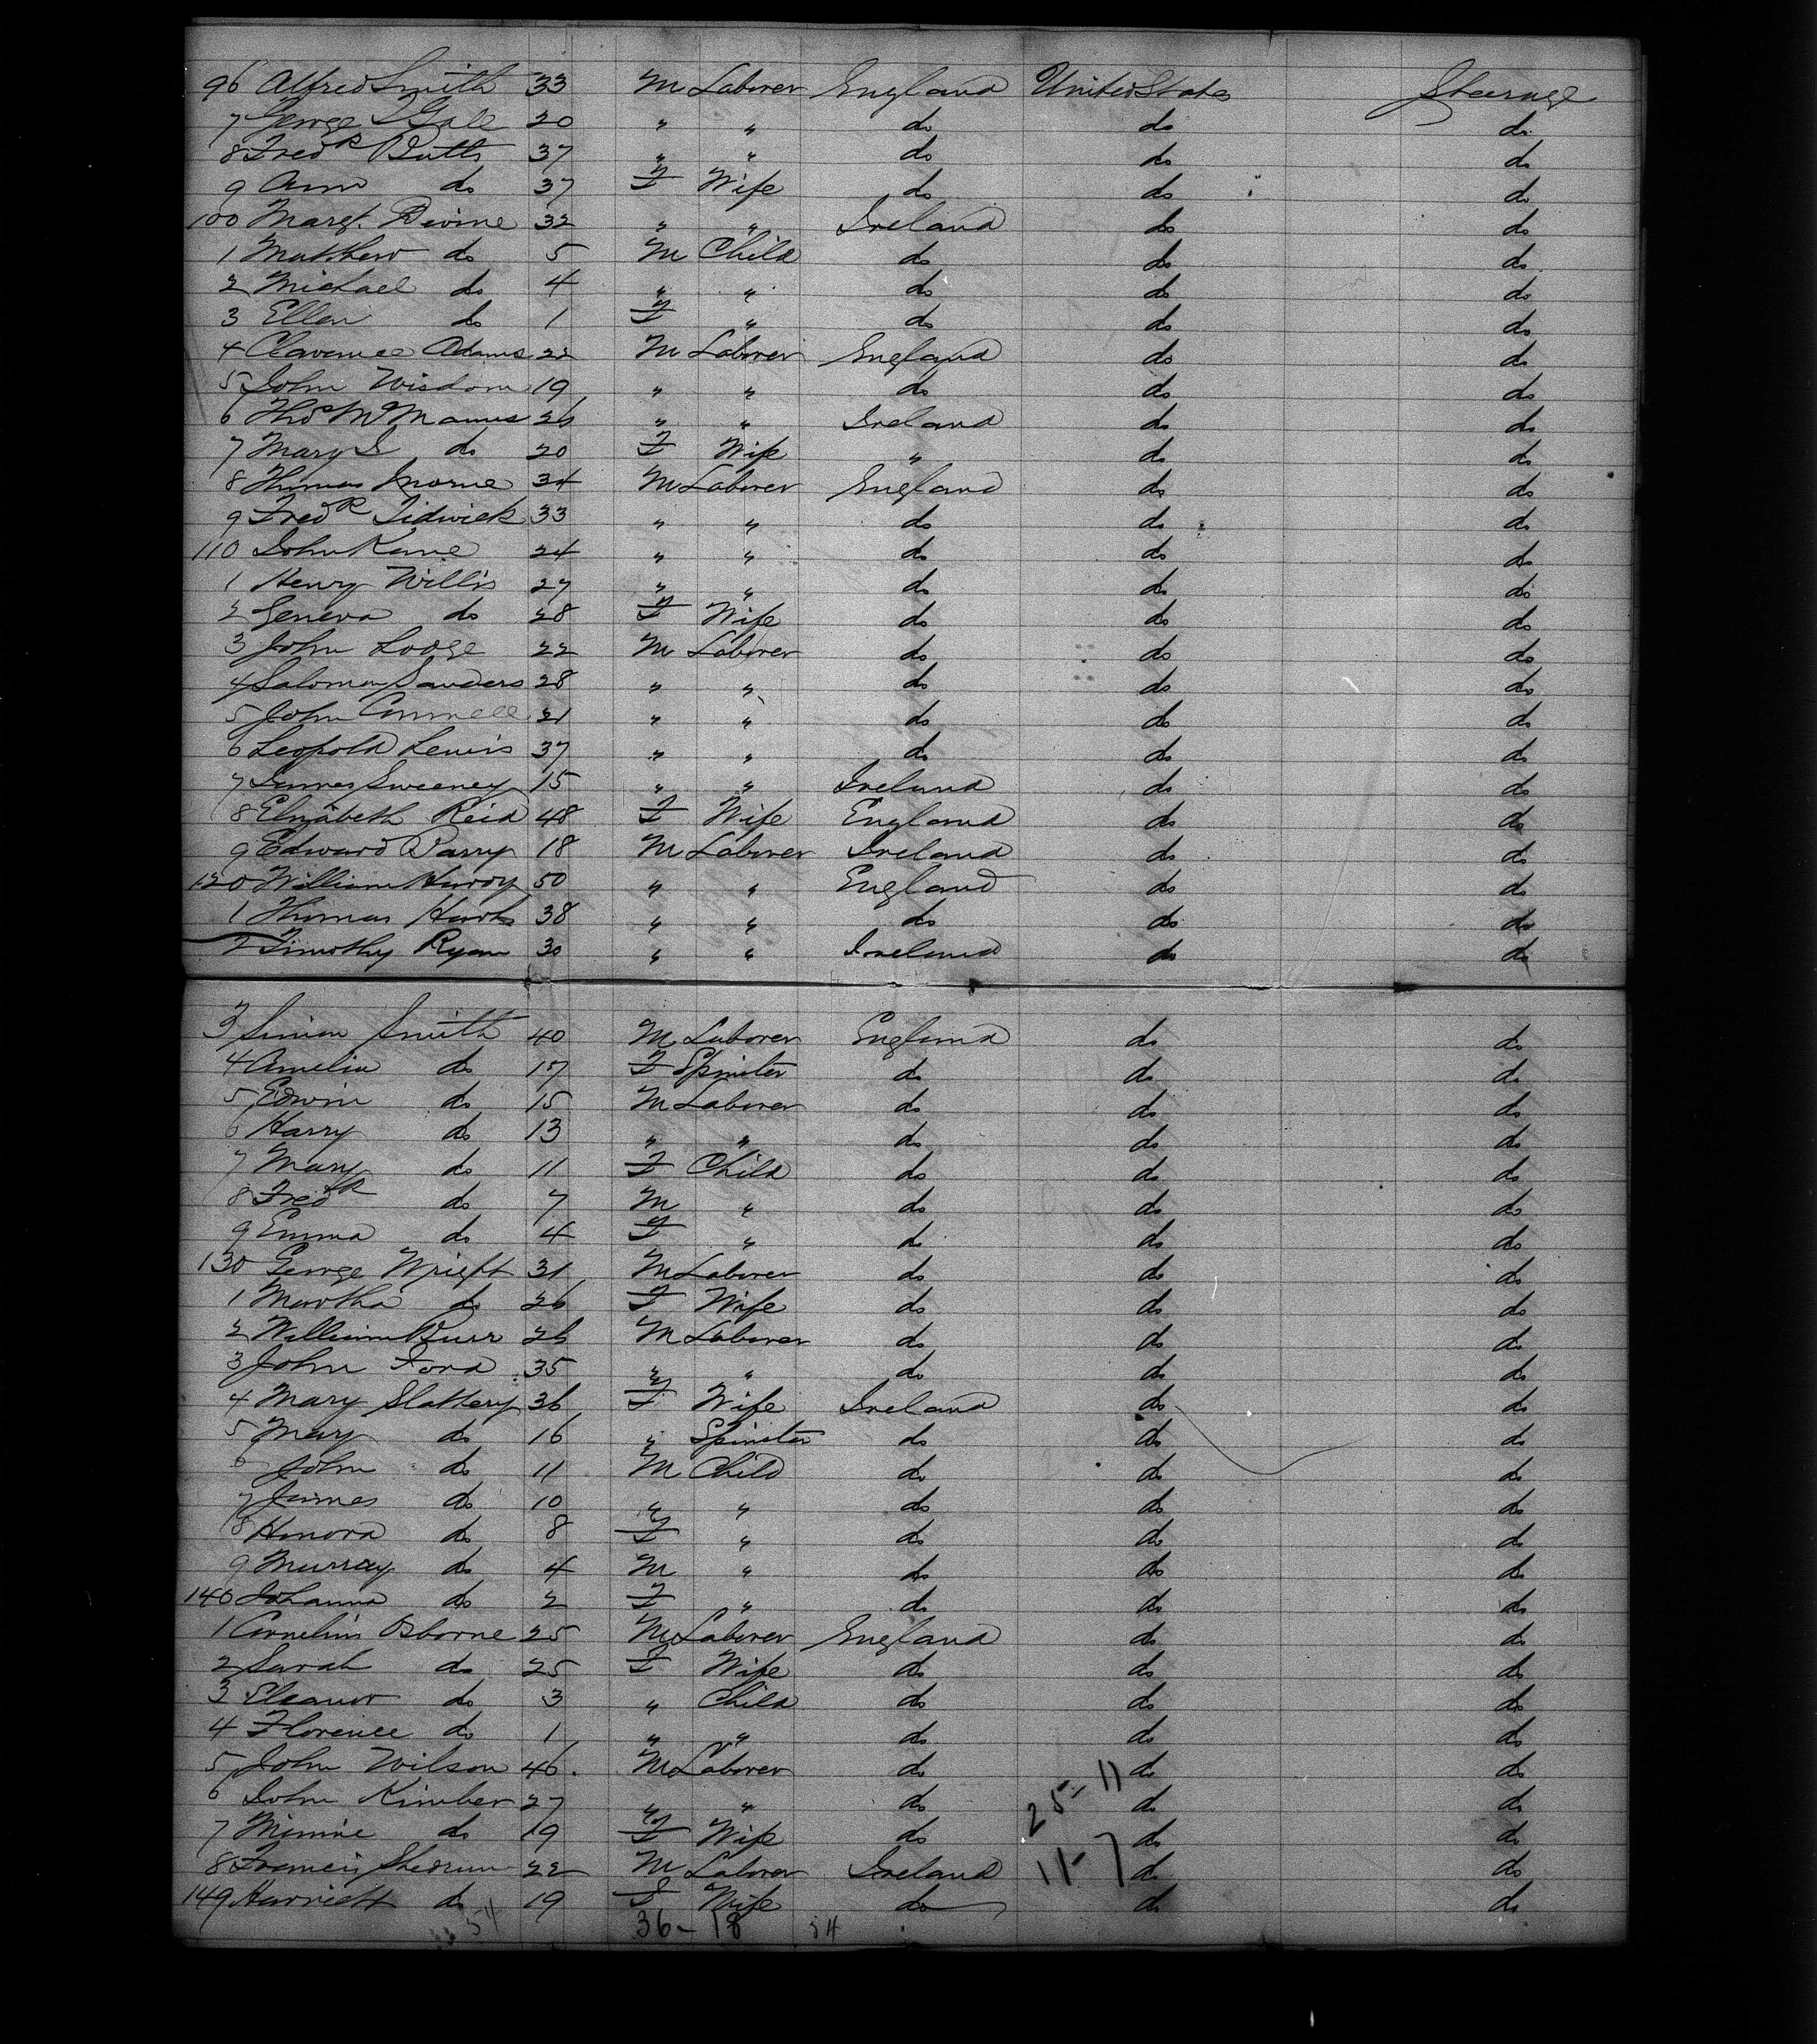 96 Alfred Smith 33 M Laborer England United States Steerage
7 George Gale 20 " " do do do
8 Fredk Butts 37 " " do do do
9 Ann do 37 F Wife do do do
100 Margt. Devine 32 " " Ireland do do
1 Matthew do 5 M Child do do do
2 Michael do 4 " " do do do
3 Ellen do 1 F " do do do
4 Clarence Adams 22 M Laborer England do do
5 John Wisdom 19 " " do do do
6 Thos McManus 26 " " Ireland do do
7 Mary do 20 F Wife " do do
8 Thomas 34 M Laborer England do do
9 Fredk Tidwick 33 " " do do do
110 John Kane 24 " " do do do
1 Henry Willis 27 " " do do do
2 Geneva do 28 F Wife do do do
3 John Lodge 22 M Laborer do do do
4 Salomon Sanders 28 " " do do do
5 John Connell 21 " " do do do
6 Leopold Lewis 37 " " do do do
7 James Sweeney 15 " " Ireland do do
8 Elizabeth Reid 48 F Wife England do do
9 Edward Barry 18 M Laborer Ireland do do
120 William Hardy 50 " " England do do
1 Thomas 38 " " do do do
2 Timothy Ryan 30 " " Ireland do do
3 Simon Smith 40 M Laborer England do do
4 Amelia do 17 F Spinster do do do
5 Edwin do 15 M Laborer do do do
6 Harry do 13 " " do do do
7 Mary do 11 F Child do do do
8 Fredk do 7 M " do do do
9 Emma do 4 F " do do do
130 George Wright 31 M Laborer do do do
1 Martha do 26 F Wife do do do
2 William Burr 26 M Laborer do do do
3 John Ford 35 " " do do do
4 Mary Slattery 36 F Wife Ireland do do
5 Mary do 16 " Spinster do do do
6 John do 11 M Child do do do
7 James do 10 " " do do do
8 Honora do 8 F " do do do
9 Murray do 4 M " do do do
140 Johanna do 2 F " do do do
1 Cornelius Osborne 25 M Laborer England do do
2 Sarah do 25 F Wife do do do
3 Eleanor do 3 " Child do do do
4 Florence do 1 " " do do do
5 John Wilson 46 M Laborer do do do
6 John Kimber 27 " " do 25-11 do do
7 Minnie do 19 F Wife do do do
8 Francis 22 M Laborer Ireland 11-7 do do
149 Harriett do 19 F Wife do do do
54 36-18 54